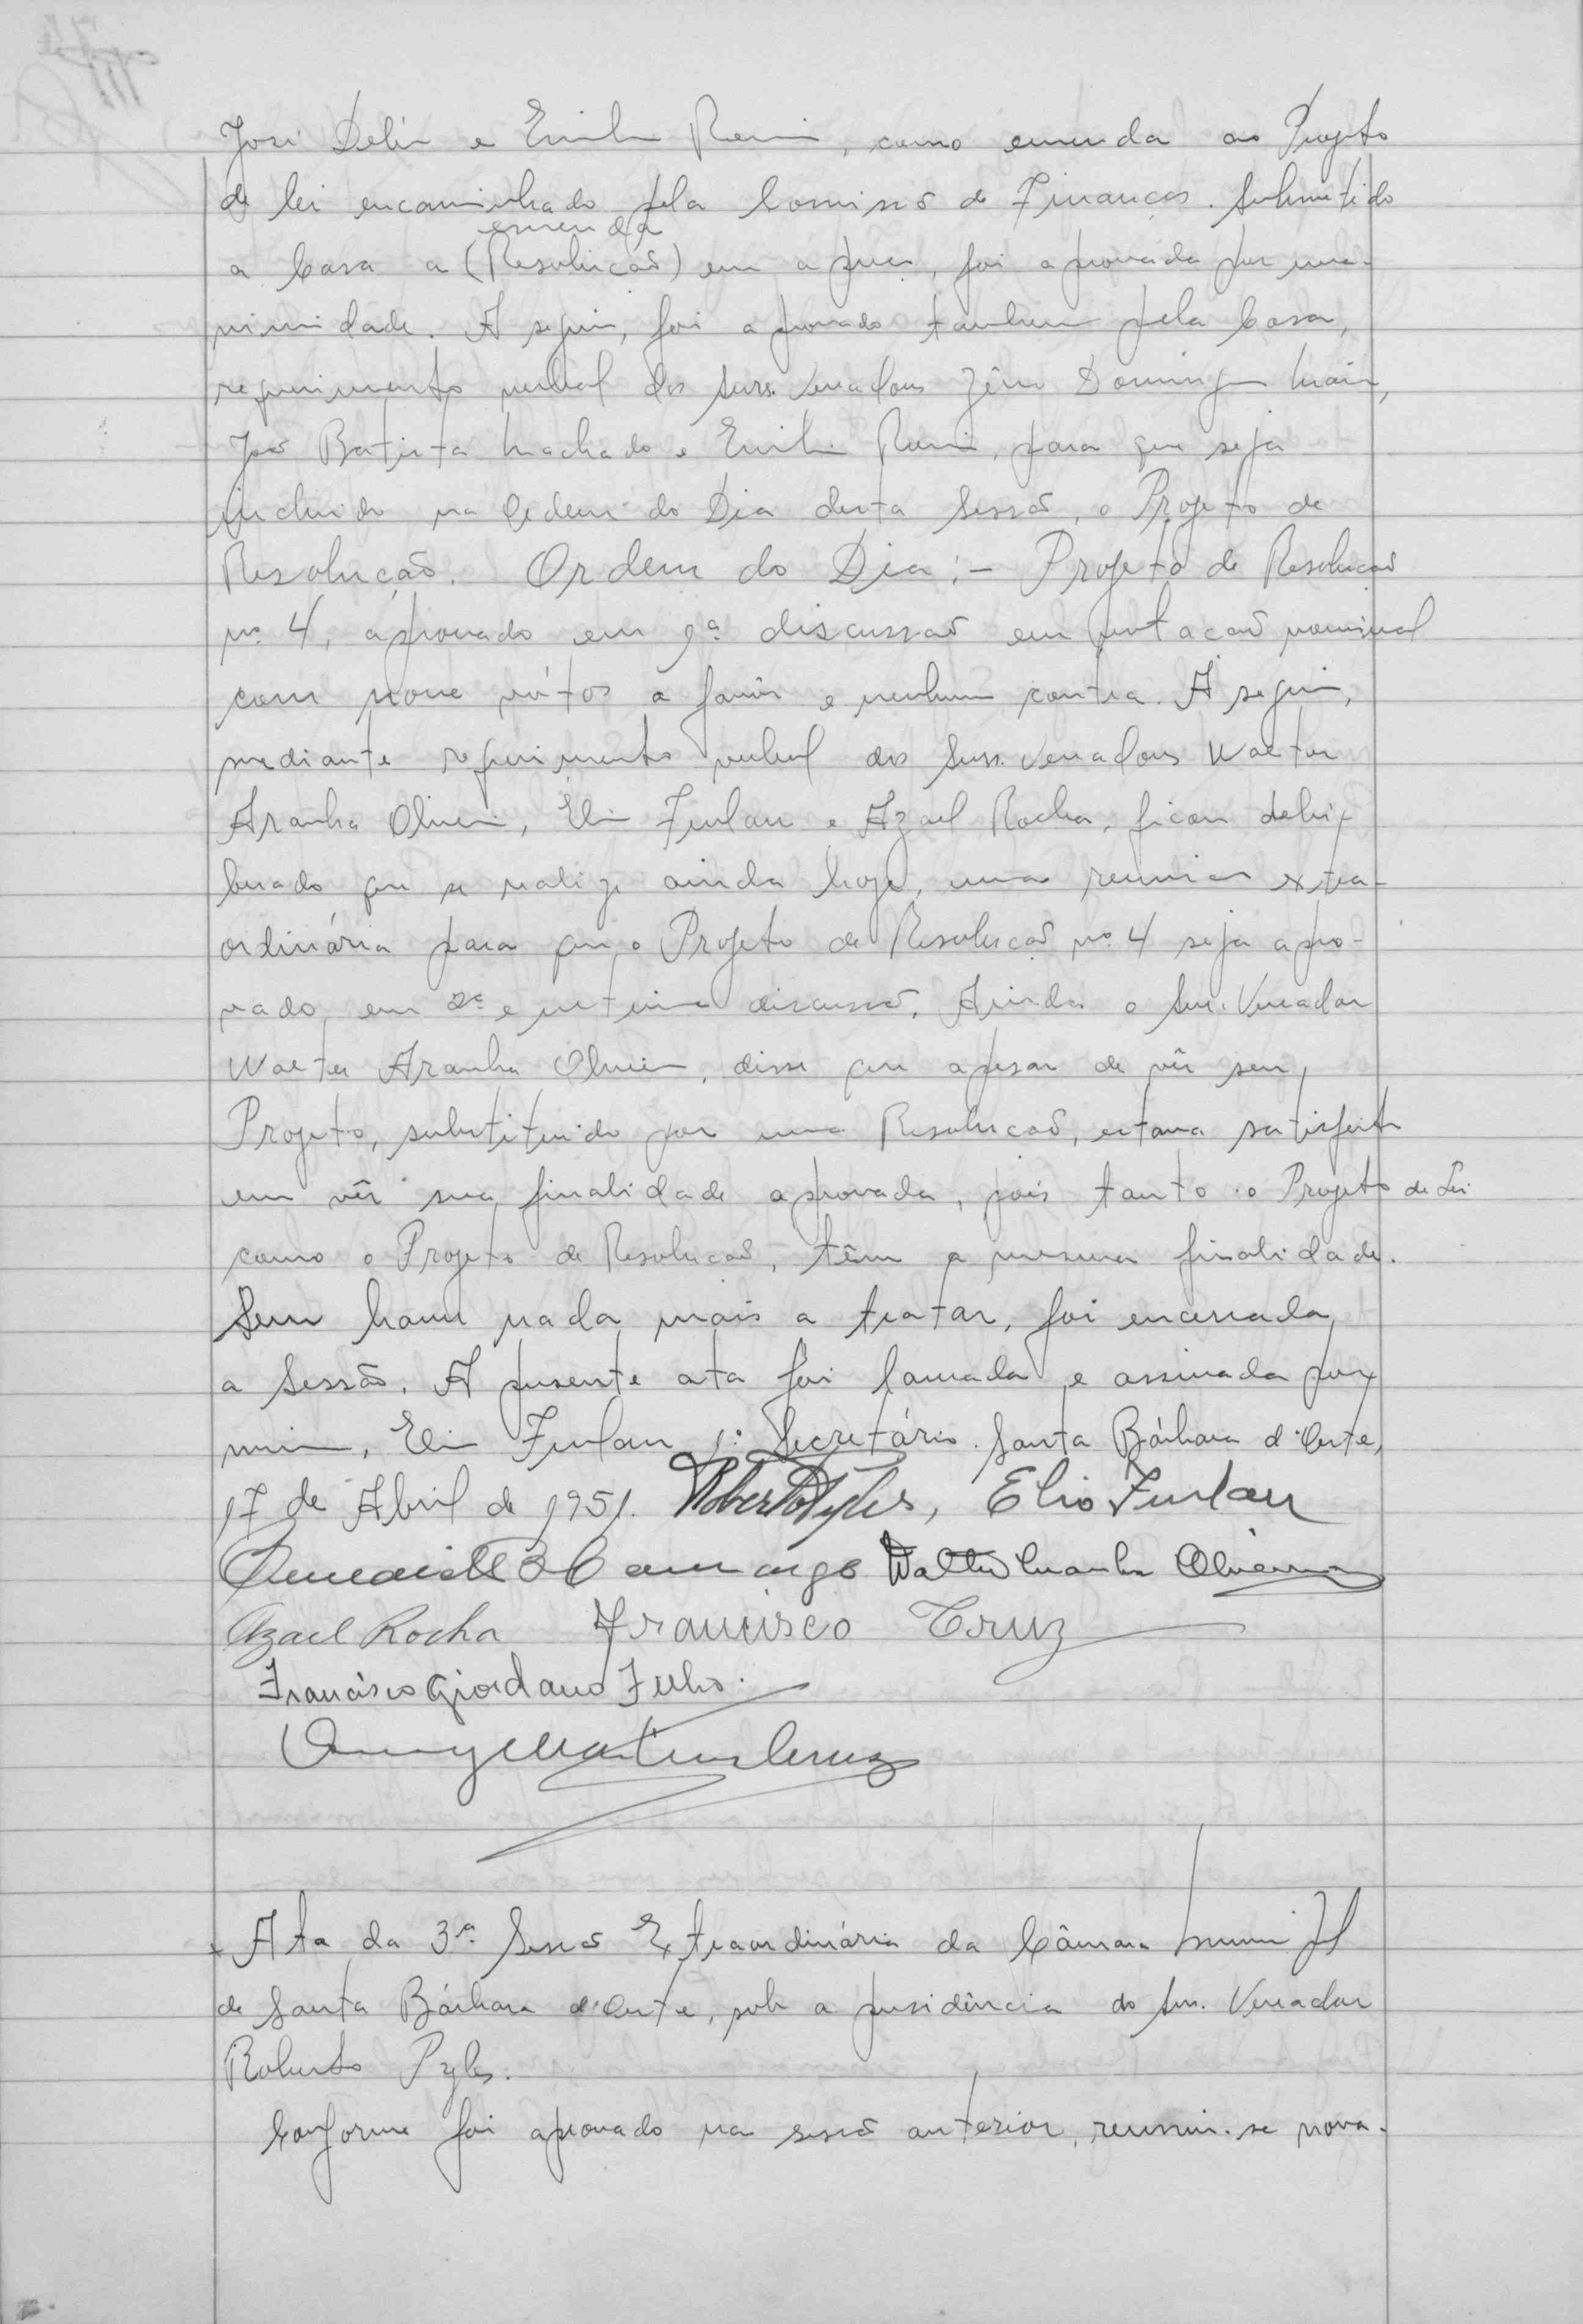 José Delia e Emilio Romi, como emenda ao Projeto
de lei encaminhado pela Comissão de Finanças. Submetido
emenda
a Casa a (Resolução) em apreço, foi aprovada por una-
nimidade. A seguir, foi aprovado tambem pela Casa,
requerimento verbal dos Snrs. Vereadores Domingos
João Batista Machado e Emilio Romi, para que seja
incluido na Ordem do Dia desta Sessão, o Projeto de
Resolução. Ordem do Dia:- Projeto de Resolução
nº 4, aprovado em 1ª discussão em votação nominal
com nove vótos a favôr e nenhum contra. A seguir,
mediante requerimento verbal dos Snrs. Vereadores Walter
Aranha Oliveira, Elio Furlan e Azael Rocha, ficou deli-
berado que se realize ainda hoje, uma reunião extra-
ordinária para que o Projeto de Resolução nº 4 seja apro-
vado, em 2ª e ultima discussão. Ainda o Snr. Vereador
Walter Aranha Oliveira, disse que apesar de vêr seu
Projeto, substituido por uma Resolução, estava satisfeito
em vêr sua finalidade aprovada, pois tanto o Projeto de Lei
como o Projeto de Resolução, têm a mesma finalidade.
Sem haver nada mais a tratar, foi encerrada
a Sessão. A presente ata foi lavrada e assinada por
mim, Elio Furlan 1º Secretário. Santa Bárbara d'Oeste,
17 de Abril de 1951. Roberto Pyles, Elio Furlan
Camargo Walter Aranha Oliveira
Azael Rocha Francisco Cruz
Francisco Giordano Filho.
Martins Cruz
Ata da 3ª Sessão Extraordinária da Câmara Municipal
de Santa Bárbara d'Oeste, sob a presidência do Snr. Vereador
Roberto Pyles.
Conforme foi aprovado na sessão anterior, reuniu-se nova-